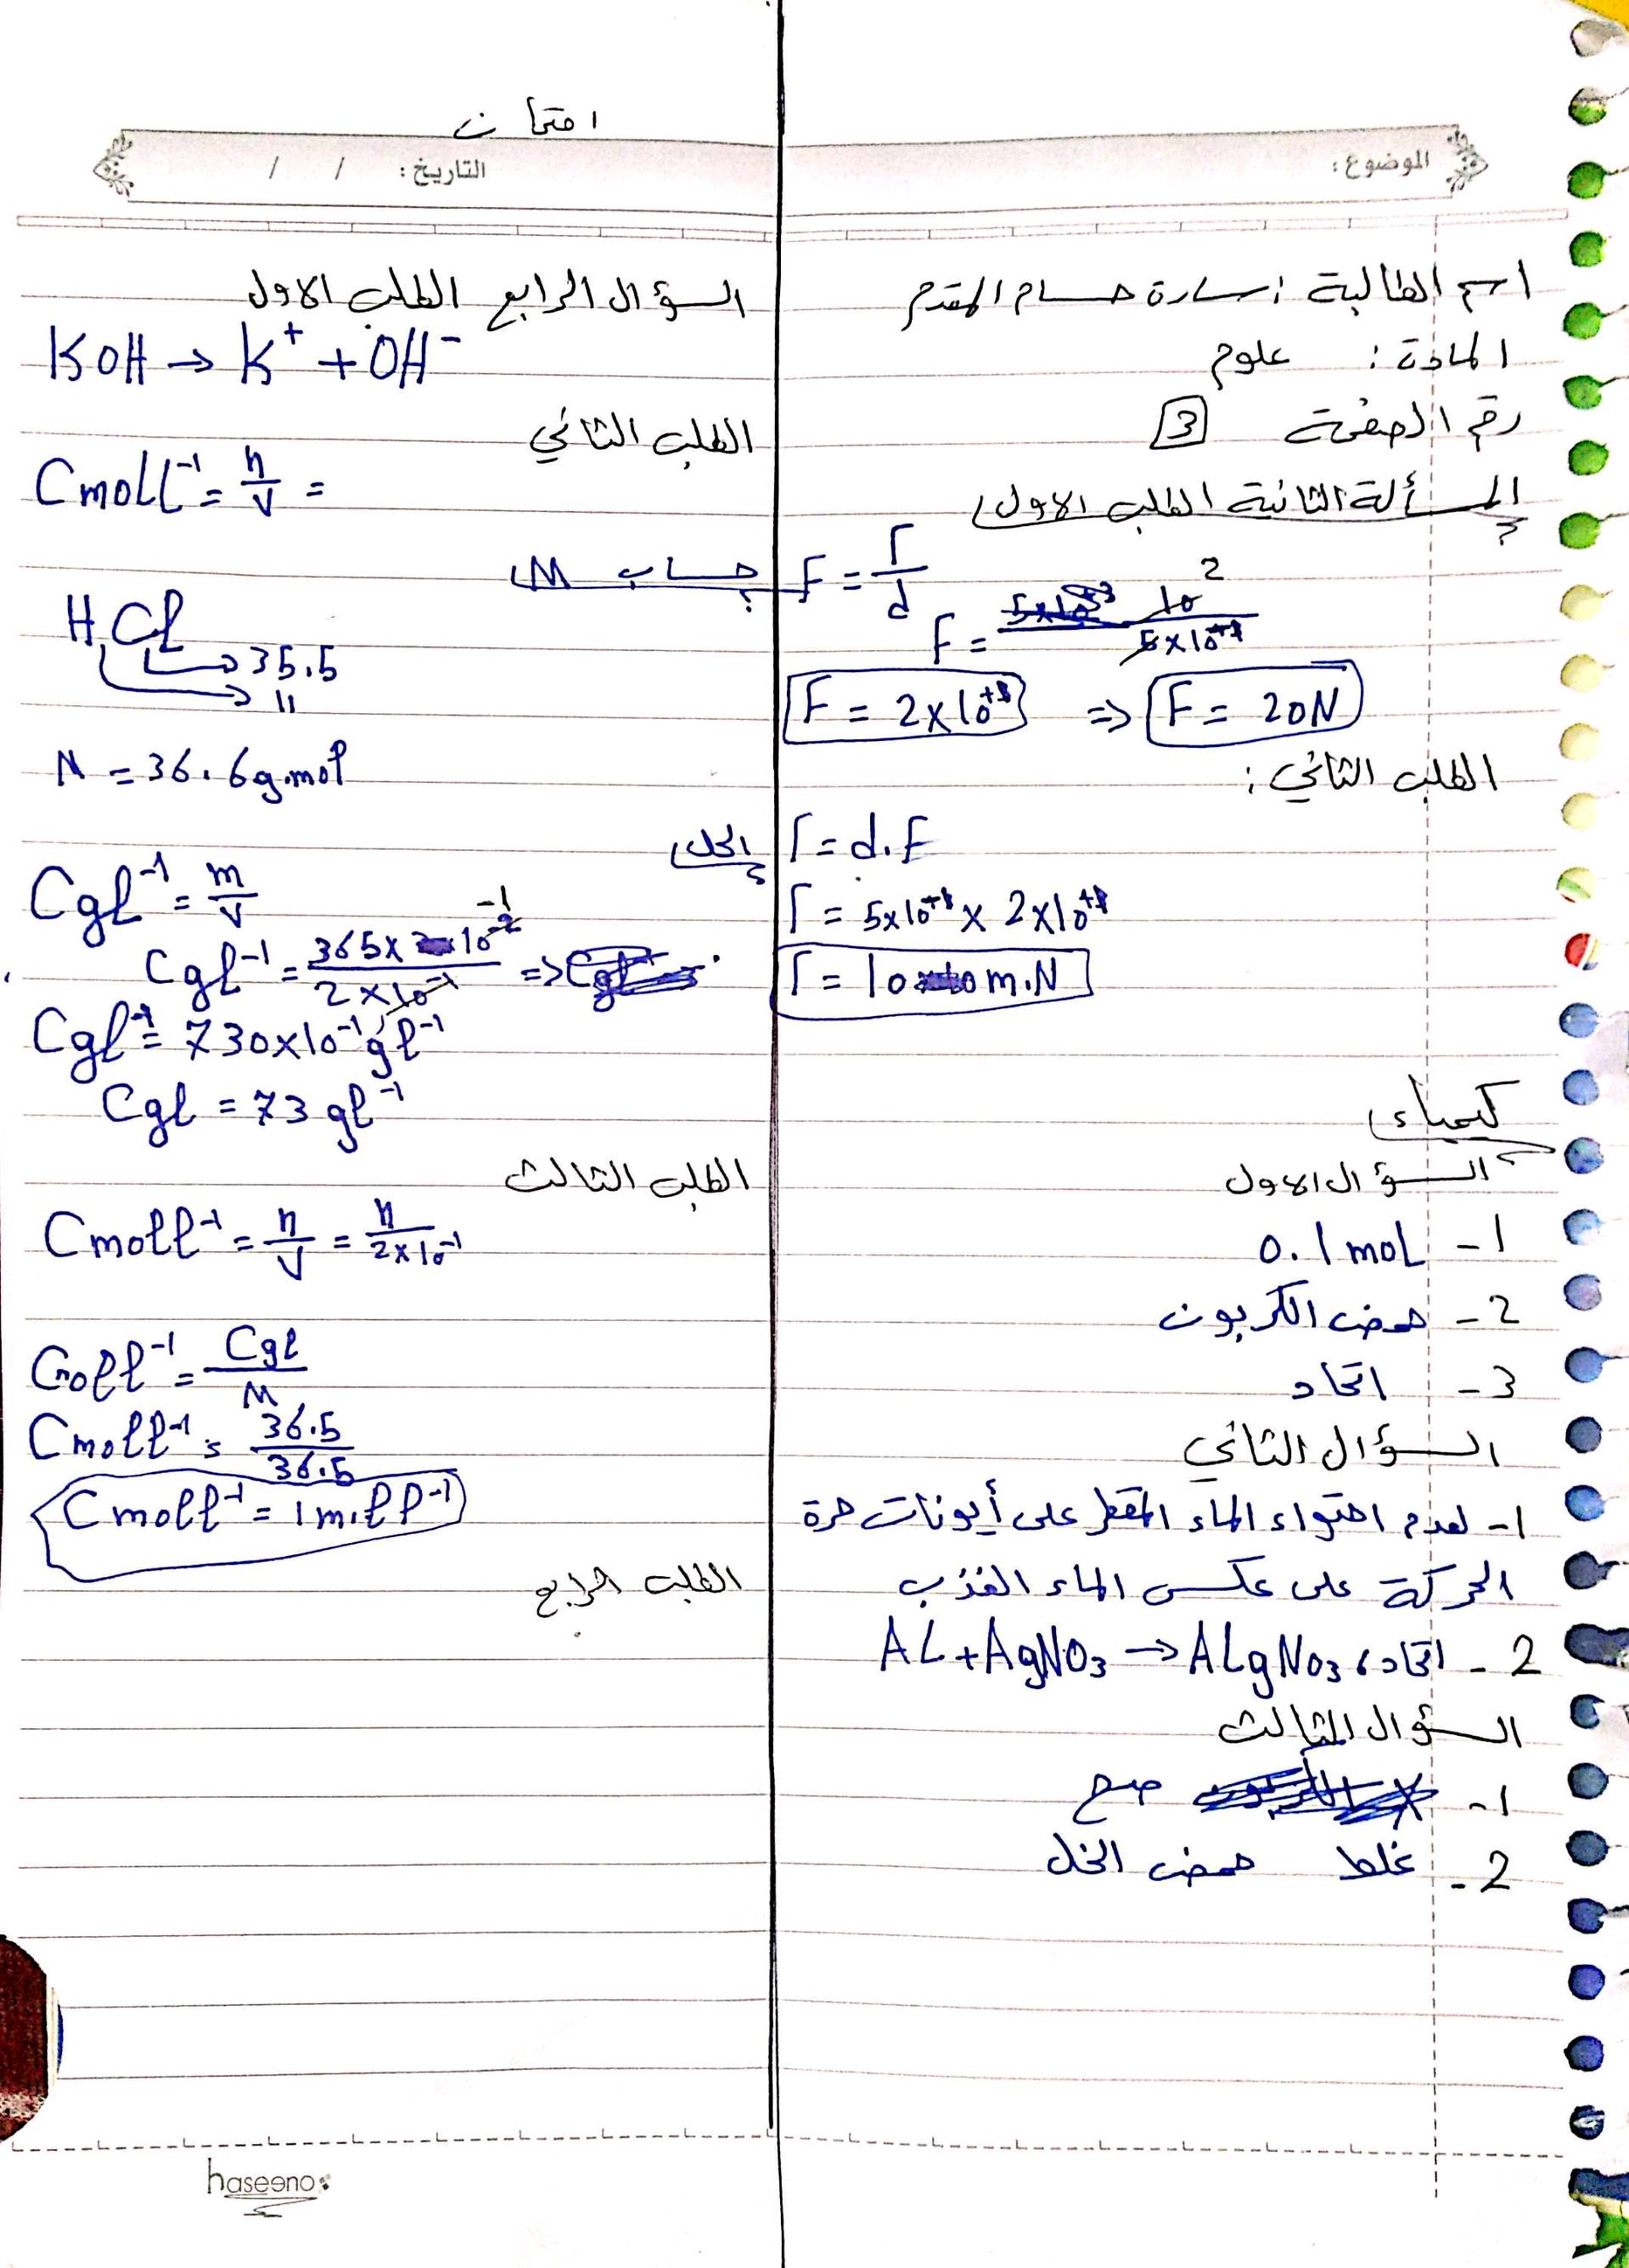 امتحان
الموضوع:
التاريخ: / /
اسم الطالبة: سارة حسام المقدم
المادة: علوم
رقم الصفحة 3
المسألة الثانية الطلب الاول
F = Γ/d
F = 10² / 5x10⁺¹
F = 2x10⁺¹ => F = 20N
الطلب الثاني:
Γ = d.F
Γ = 5x10⁺¹ x 2x10⁺¹
Γ = 10 m.N
كيمياء
السؤال الاول
1- 0.1 mol
2- حمض الكربون
3- اتحاد
السؤال الثاني
1- لعدم احتواء الماء المقطر على أيونات حرة
الحركة على عكس الماء العذب
2- اتحاد، AL + AgNO₃ → ALgNO₃
السؤال الثالث
1- صح
2- غلط حمض الخل
السؤال الرابع الطلب الاول
KOH → K⁺ + OH⁻
الطلب الثاني
Cmoll⁻¹ = n/v =
حساب M
HCl
35.5
11
M = 36.6g.mol
الحل
Cgl⁻¹ = m/v
Cgl⁻¹ = 365x10⁻¹ / 2x10⁻¹ =>
Cgl⁻¹ = 730x10⁻¹ gl⁻¹
Cgl = 73 gl⁻¹
الطلب الثالث
Cmoll⁻¹ = n/v = n/2x10⁻¹
Cmoll⁻¹ = Cgl/M
Cmoll⁻¹ = 36.5/36.5
Cmoll⁻¹ = 1m.ll⁻¹
الطلب الرابع
haseeno